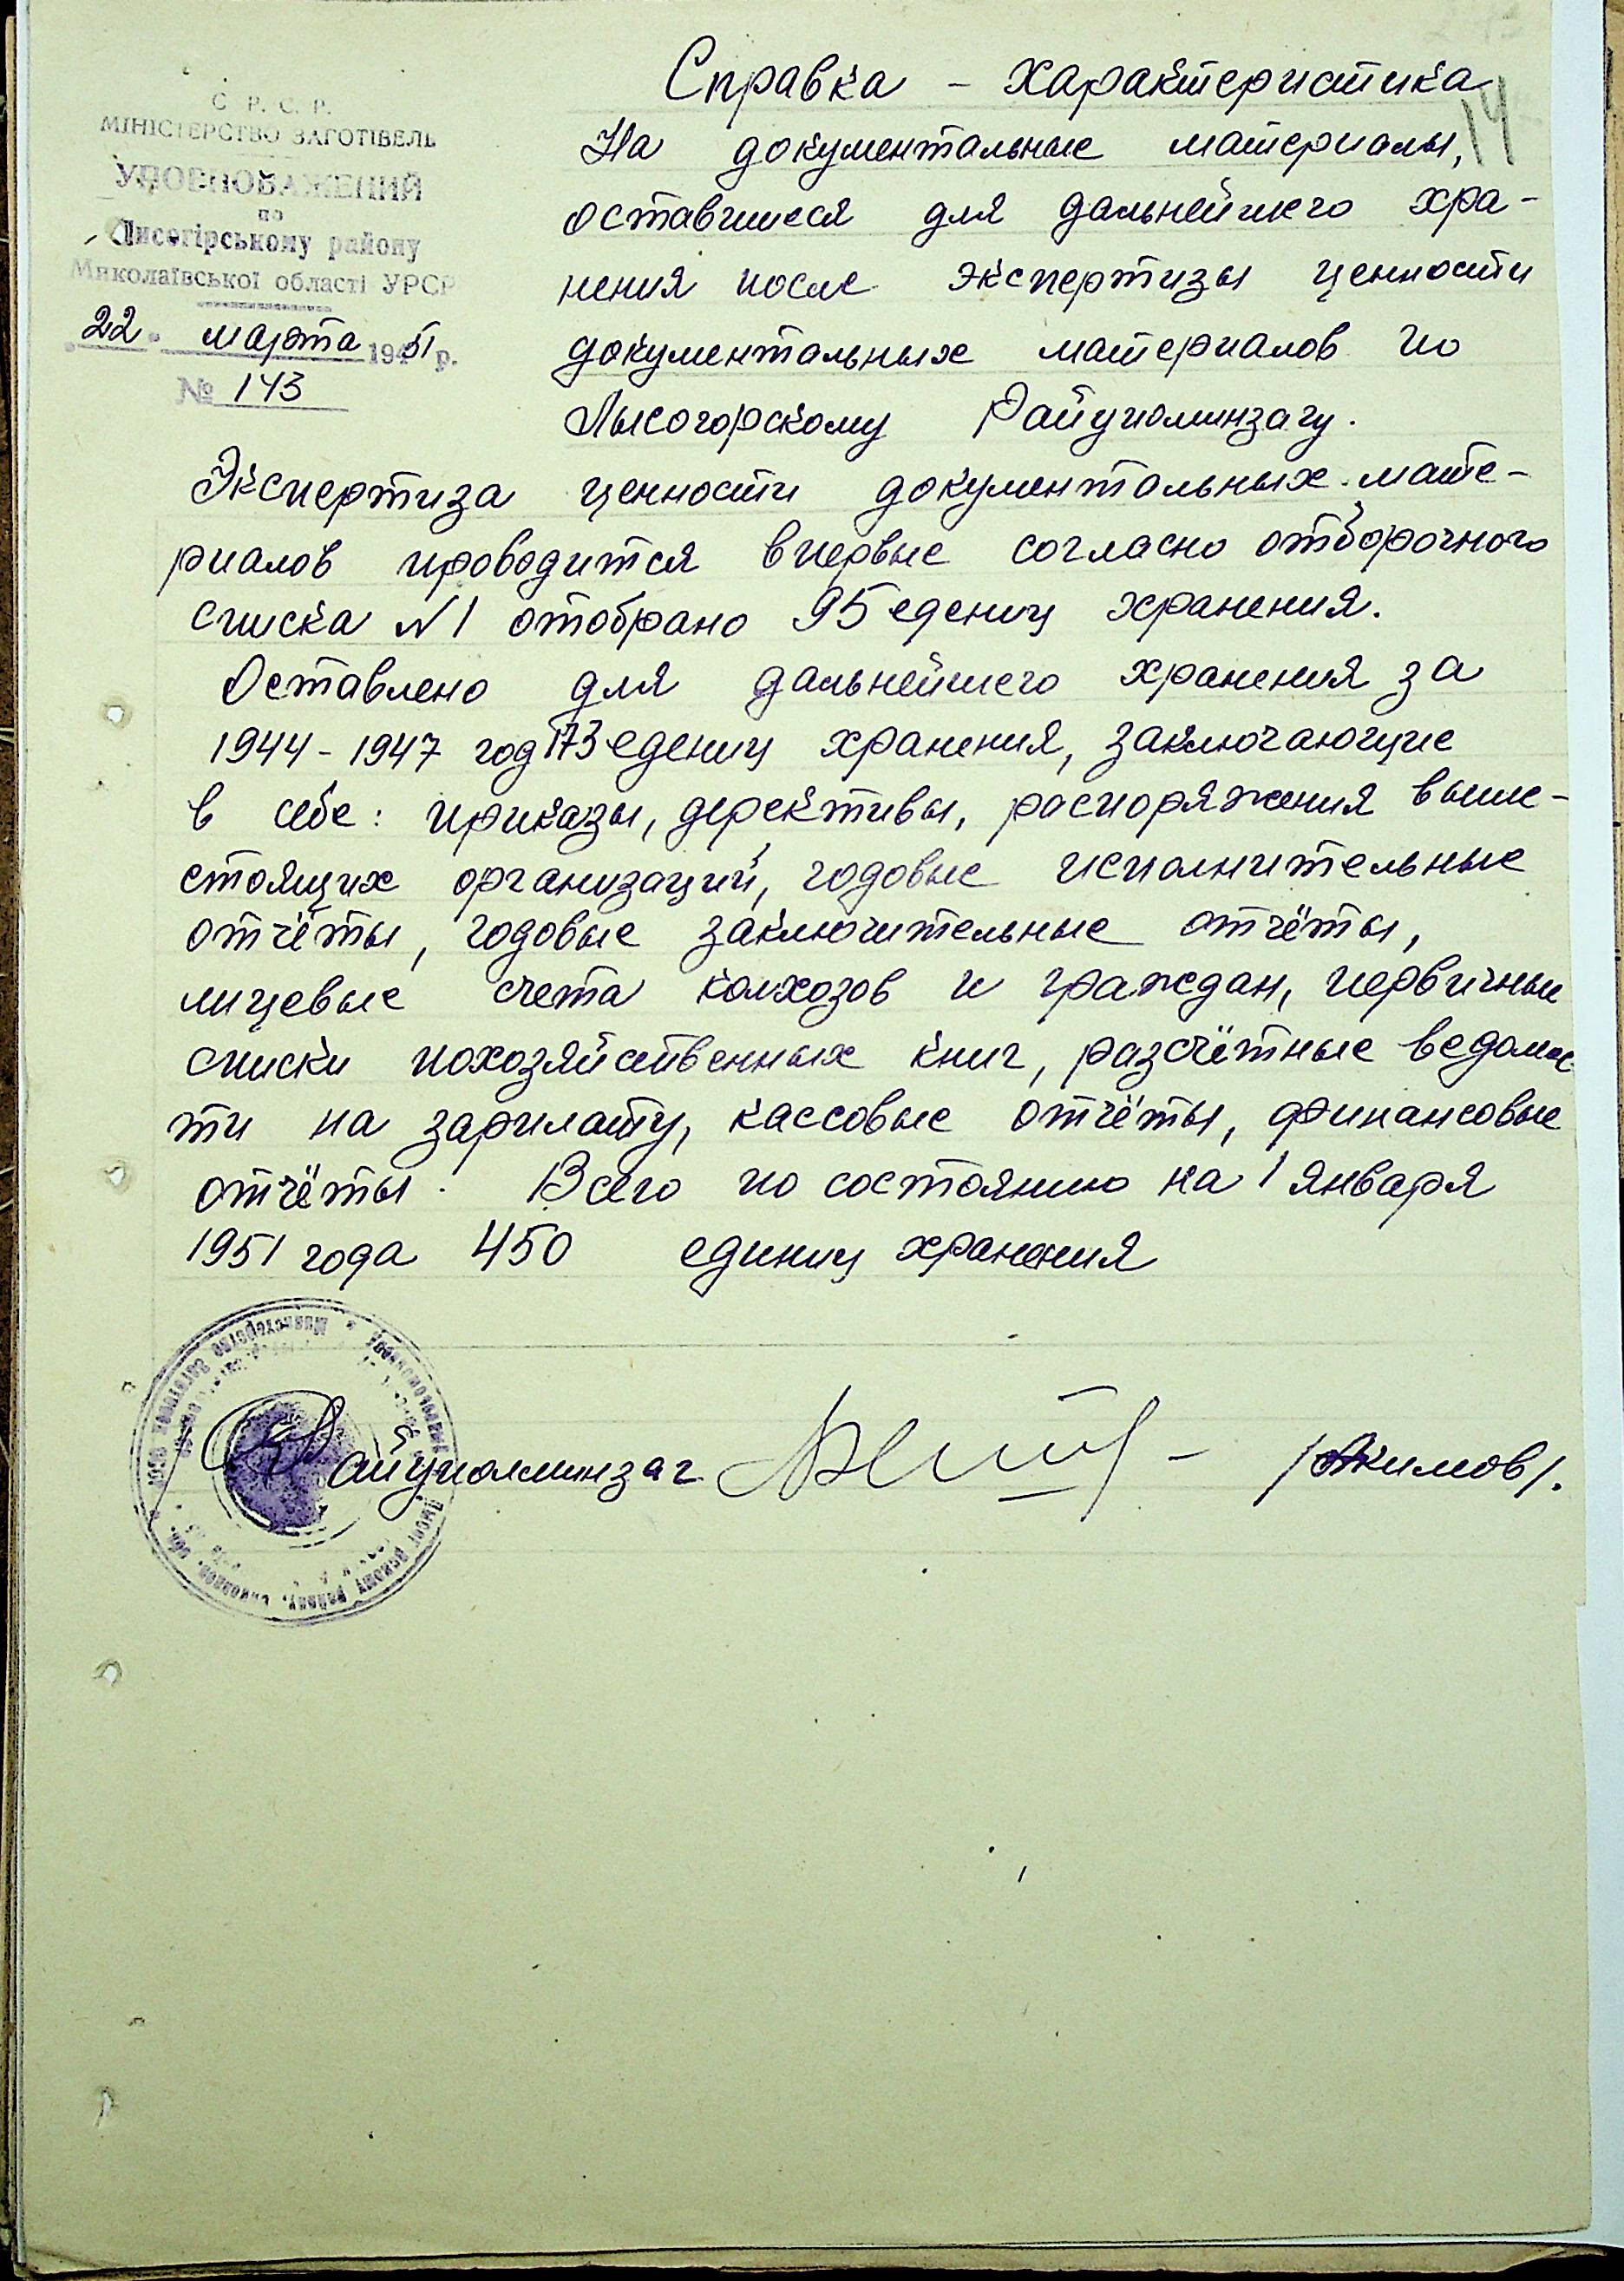 С. Р. С. Р.
МІНІСТЕРСТВО ЗАГОТІВЕЛЬ
УПОВНОВАЖЕНИЙ
по
Лисогірському району
Миколаївської області УРСР
22 марта 1951 р.
№ 143
14
Справка – характеристика
На документальные материалы,
оставшиеся для дальнейшего хра-
нения после экспертизы ценности
документальных материалов по
Лысогорскому Райуполминзагу.
Экспертиза ценности документальных мате-
риалов проводится впервые согласно отборочного
списка №1 отобрано 95 едениц хранения.
Оставлено для дальнейшего хранения за
1944-1947 год 173 едениц хранения, заключающие
в себе: приказы, дерективы, распоряжения выше-
стоящих организаций, годовые исполнительные
отчёты, годовые заключительные отчёты,
лицевые счета колхозов и граждан, первичные
списки похозяйственных книг, разсчётные ведомос-
ти на зарплату, кассовые отчёты, финансовые
отчёты. Всего по состоянию на 1 января
1951 года 450 единиц хранения
Райуполминзаг /Акимов/.